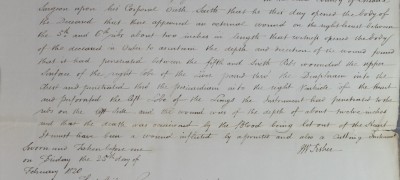 Surgeon upon his Corporal Oath Saith that he this day opened the body of
the Deceased that there appeared an external wound on the right breast between
the 5th and 6th rib about two inches in length that on opened the body
of the deceased in Order to ascertain the depth and direction of the wound found
that it had penetrated between the fifth and Sixth Rib wounded the upper
Surface of the right lobe of the Liver passed thro' the Diaphram into the
Chest and penetrated thro' the pericardium into the right Ventricle of the heart
and perforated the left Lobe of the Lungs the Instrument had penetrated to the
ribs on the left Side and the wound was of the depth of about twelve inches
and that the death was occasioned by the blood being let out of the Heart
It must have been a wound inflicted by a pointed and also a Cutting
Sworn and Taken before me
on Friday the 25th day of
February 1820